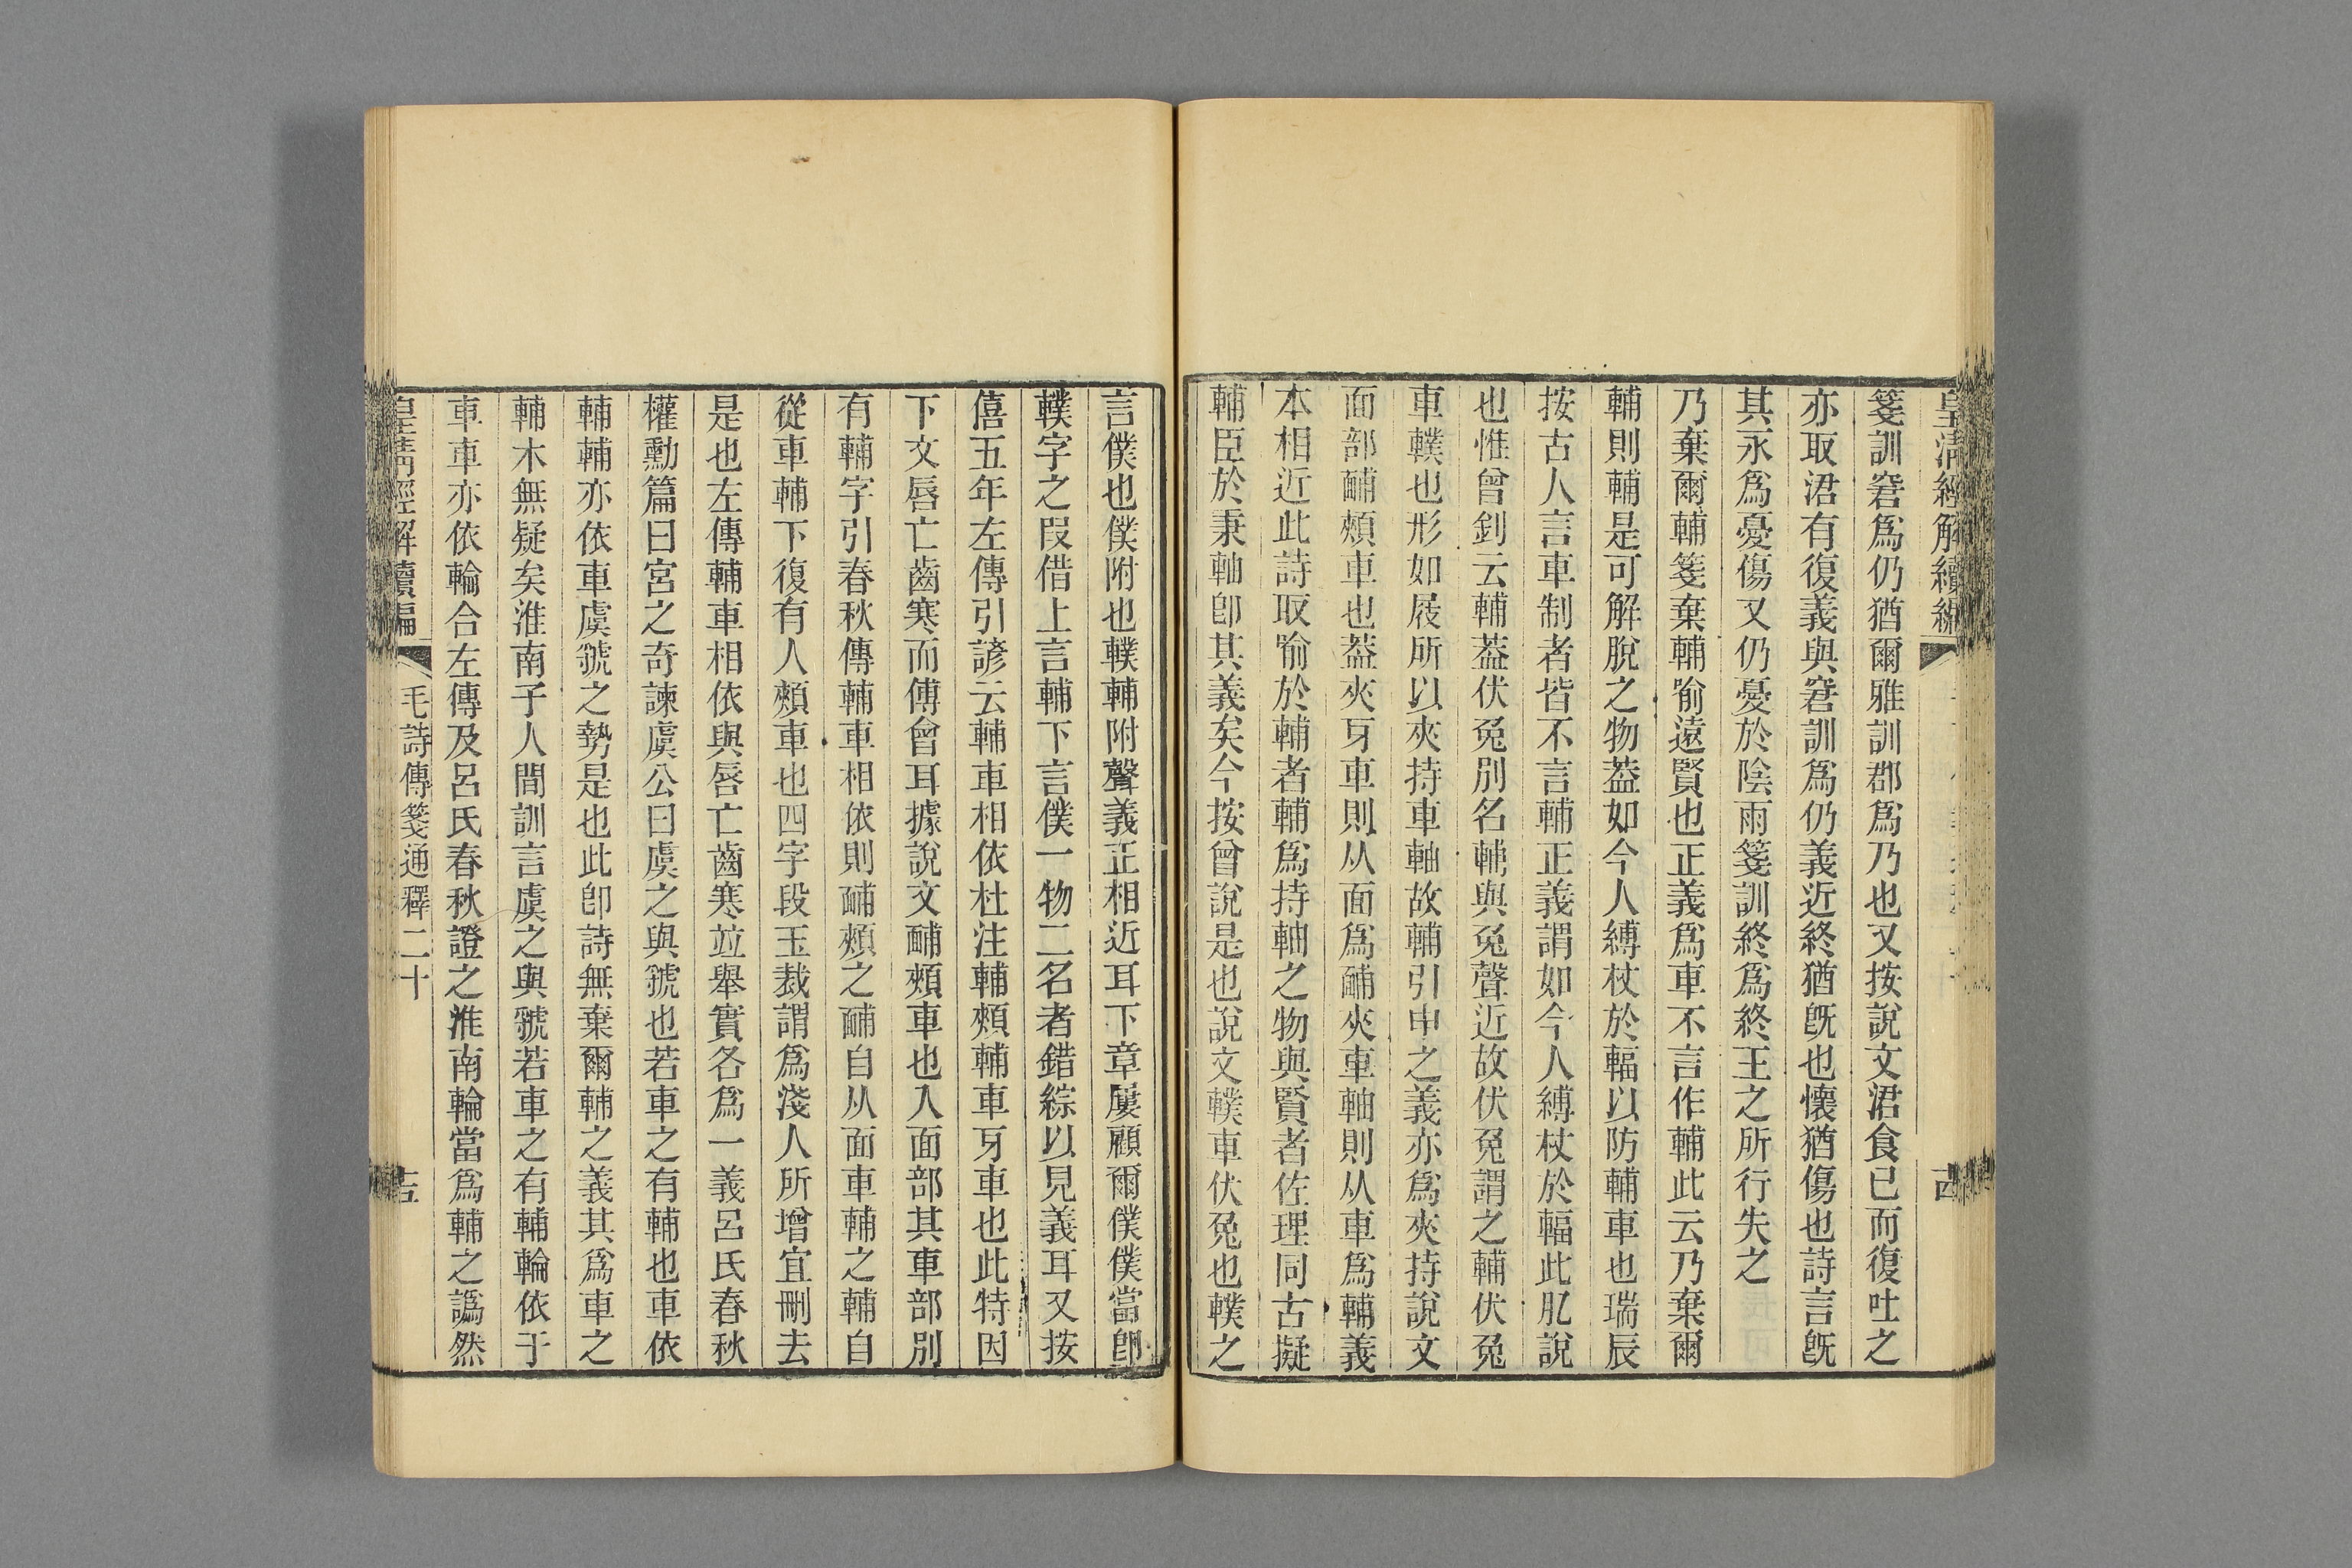 皇清經解續編
箋訓窘爲仍猶爾雅訓郡爲乃也又按說文涒食已而復吐之
亦取涒有復義與窘訓爲仍義近終猶旣也懷猶傷也詩言旣
其永爲憂傷又仍憂於陰雨箋訓終爲終王之所行失之
乃棄爾輔箋棄輔喻遠賢也正義爲車不言作輔此云乃棄爾
輔則輔是可解脫之物葢如今人縛杖於輻以防輔車也瑞辰
按古人言車制者皆不言輔正義謂如今人縛杖於輻此肊說
也惟曾釗云輔葢伏兔別名輔與兔聲近故伏兔謂之輔伏兔
車轐也形如屐所以夾持車軸故輔引申之義亦爲夾持說文
面部酺頰車也葢夾牙車則从面爲酺夾車軸則从車爲輔義
本相近此詩取喻於輔者輔爲持軸之物與賢者佐理同古擬
輔臣於秉軸卽其義矣今按曾說是也說文轐車伏兔也轐之
言僕也僕附也轐輔附聲義正相近耳下章屢顧爾僕僕當卽
轐字之叚借上言輔下言僕一物二名者錯綜以見義耳又按
僖五年左傳引諺云輔車相依杜注輔頰輔車牙車也此特因
下文唇亡齒寒而傅會耳據說文酺頰車也入面部其車部別
有輔字引春秋傳輔車相依則酺頰之酺自从面車輔之輔自
從車輔下復有人頰車也四字段玉裁謂爲淺人所增宜刪去
是也左傳輔車相依與唇亡齒寒竝舉實各爲一義呂氏春秋
權勳篇曰宮之奇諫虞公曰虞之與虢也若車之有輔也車依
輔輔亦依車虞虢之勢是也此卽詩無棄爾輔之義其爲車之
輔木無疑矣淮南子人間訓言虞之與虢若車之有輔輪依于
車車亦依輪合左傳及呂氏春秋證之淮南輪當爲輔之譌然
皇清經解續編 毛詩傳箋通釋二十 十五